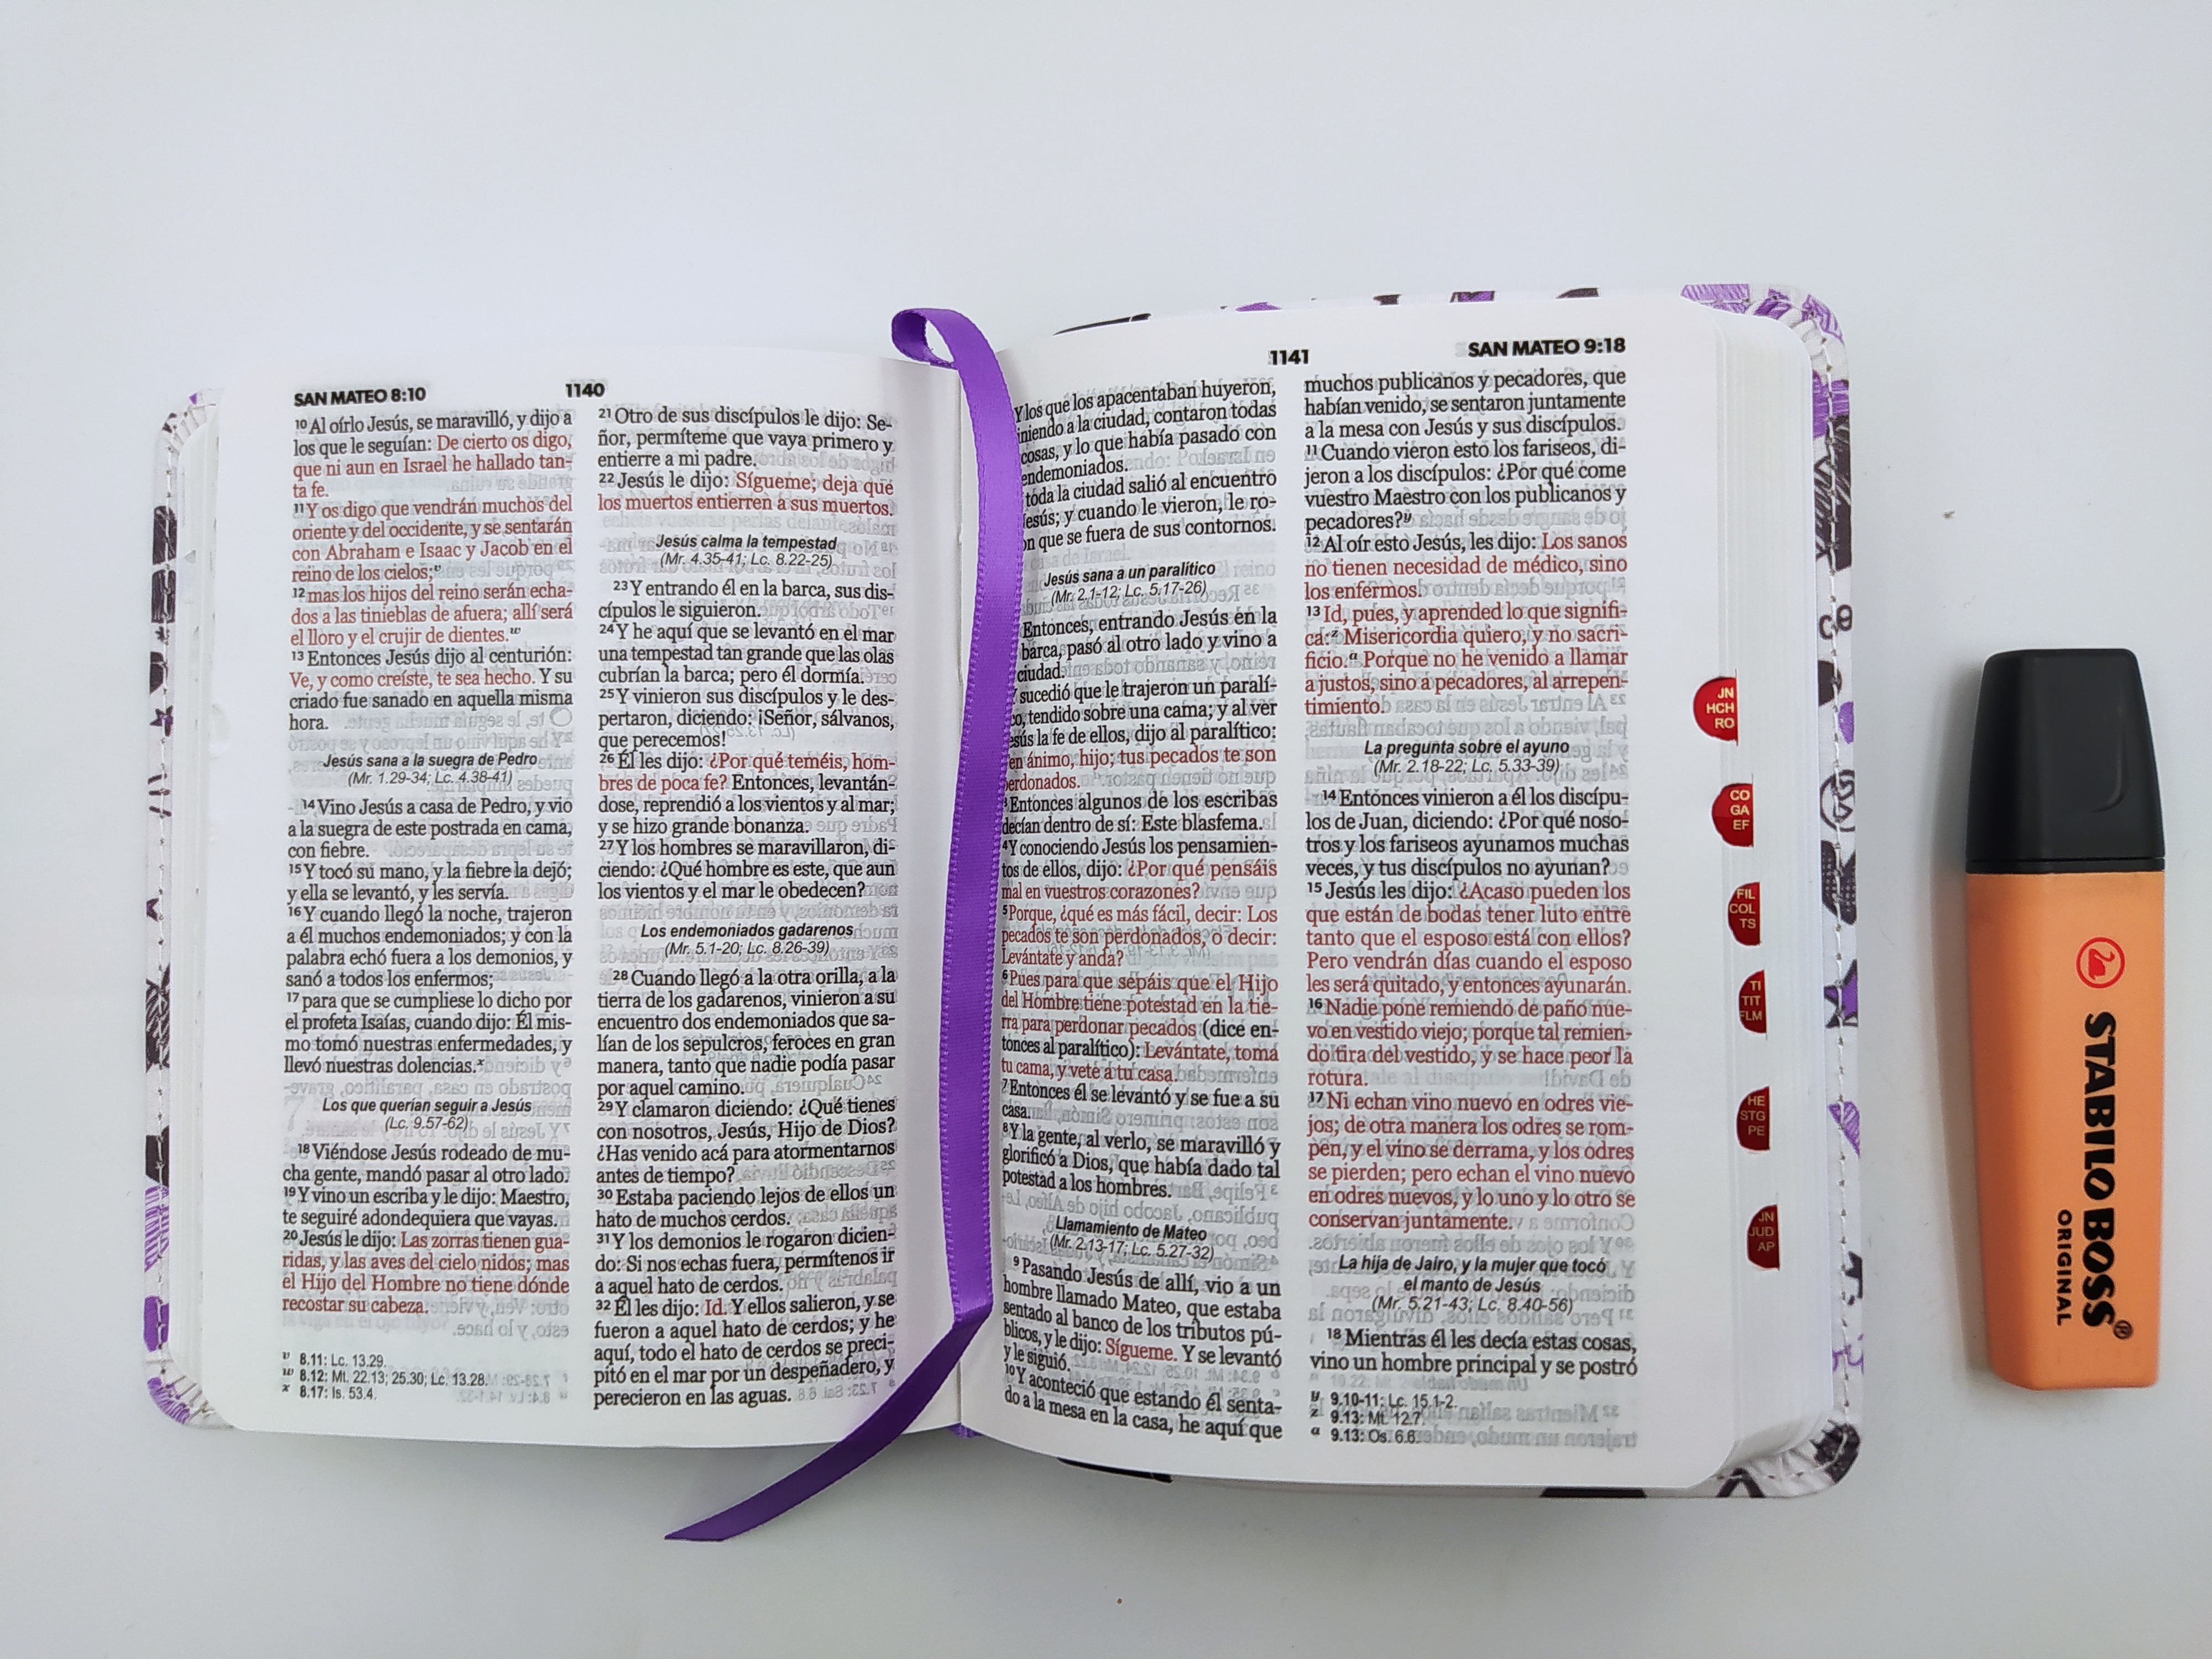 SAN MATEO 8:10
1140
10 Al oírlo Jesús, se maravilló, y dijo a
los que le seguían: De cierto os digo,
que ni aun en Israel he hallado tan-
ta fe.
11 Y os digo que vendrán muchos del
oriente y del occidente, y se sentarán
con Abraham e Isaac y Jacob en el
reino de los cielos;v
12 mas los hijos del reino serán echa-
dos a las tinieblas de afuera; allí será
el lloro y el crujir de dientes.w
13 Entonces Jesús dijo al centurión:
Ve, y como creíste, te sea hecho. Y su
criado fue sanado en aquella misma
hora.
Jesús sana a la suegra de Pedro
(Mr. 1.29-34; Lc. 4.38-41)
14 Vino Jesús a casa de Pedro, y vio
a la suegra de este postrada en cama,
con fiebre.
15 Y tocó su mano, y la fiebre la dejó;
y ella se levantó, y les servía.
16 Y cuando llegó la noche, trajeron
a él muchos endemoniados; y con la
palabra echó fuera a los demonios, y
sanó a todos los enfermos;
17 para que se cumpliese lo dicho por
el profeta Isaías, cuando dijo: Él mis-
mo tomó nuestras enfermedades, y
llevó nuestras dolencias.x
Los que querían seguir a Jesús
(Lc. 9.57-62)
18 Viéndose Jesús rodeado de mu-
cha gente, mandó pasar al otro lado.
19 Y vino un escriba y le dijo: Maestro,
te seguiré adondequiera que vayas.
20 Jesús le dijo: Las zorras tienen gua-
ridas, y las aves del cielo nidos; mas
el Hijo del Hombre no tiene dónde
recostar su cabeza.
v 8.11: Lc. 13.29.
w 8.12: Mt. 22.13; 25.30; Lc. 13.28.
x 8.17: Is. 53.4.
21 Otro de sus discípulos le dijo: Se-
ñor, permíteme que vaya primero y
entierre a mi padre.
22 Jesús le dijo: Sígueme; deja que
los muertos entierren a sus muertos.
Jesús calma la tempestad
(Mr. 4.35-41; Lc. 8.22-25)
23 Y entrando él en la barca, sus dis-
cípulos le siguieron.
24 Y he aquí que se levantó en el mar
una tempestad tan grande que las olas
cubrían la barca; pero él dormía.
25 Y vinieron sus discípulos y le des-
pertaron, diciendo: ¡Señor, sálvanos,
que perecemos!
26 Él les dijo: ¿Por qué teméis, hom-
bres de poca fe? Entonces, levantán-
dose, reprendió a los vientos y al mar;
y se hizo grande bonanza.
27 Y los hombres se maravillaron, di-
ciendo: ¿Qué hombre es este, que aun
los vientos y el mar le obedecen?
Los endemoniados gadarenos
(Mr. 5.1-20; Lc. 8.26-39)
28 Cuando llegó a la otra orilla, a la
tierra de los gadarenos, vinieron a su
encuentro dos endemoniados que sa-
lían de los sepulcros, feroces en gran
manera, tanto que nadie podía pasar
por aquel camino.
29 Y clamaron diciendo: ¿Qué tienes
con nosotros, Jesús, Hijo de Dios?
¿Has venido acá para atormentarnos
antes de tiempo?
30 Estaba paciendo lejos de ellos un
hato de muchos cerdos.
31 Y los demonios le rogaron dicien-
do: Si nos echas fuera, permítenos ir
a aquel hato de cerdos.
32 Él les dijo: Id. Y ellos salieron, y se
fueron a aquel hato de cerdos; y he
aquí, todo el hato de cerdos se preci-
pitó en el mar por un despeñadero, y
perecieron en las aguas.
1141
SAN MATEO 9:18
Y los que los apacentaban huyeron,
niendo a la ciudad, contaron todas
cosas, y lo que había pasado con
endemoniados.
toda la ciudad salió al encuentro
Jesús; y cuando le vieron, le ro-
on que se fuera de sus contornos.
Jesús sana a un paralítico
(Mr. 2.1-12; Lc. 5.17-26)
Entonces, entrando Jesús en la
barca, pasó al otro lado y vino a
ciudad.
sucedió que le trajeron un paralí-
co, tendido sobre una cama; y al ver
esús la fe de ellos, dijo al paralítico:
en ánimo, hijo; tus pecados te son
erdonados.
3 Entonces algunos de los escribas
decían dentro de sí: Este blasfema.
4 Y conociendo Jesús los pensamien-
tos de ellos, dijo: ¿Por qué pensáis
mal en vuestros corazones?
5 Porque, ¿qué es más fácil, decir: Los
pecados te son perdonados, o decir:
Levántate y anda?
6 Pues para que sepáis que el Hijo
del Hombre tiene potestad en la tie-
rra para perdonar pecados (dice en-
tonces al paralítico): Levántate, toma
tu cama, y vete a tu casa.
7 Entonces él se levantó y se fue a su
casa.
8 Y la gente, al verlo, se maravilló y
glorificó a Dios, que había dado tal
potestad a los hombres.
Llamamiento de Mateo
(Mr. 2.13-17; Lc. 5.27-32)
9 Pasando Jesús de allí, vio a un
hombre llamado Mateo, que estaba
sentado al banco de los tributos pú-
blicos, y le dijo: Sígueme. Y se levantó
y le siguió.
10 Y aconteció que estando él senta-
do a la mesa en la casa, he aquí que
muchos publicanos y pecadores, que
habían venido, se sentaron juntamente
a la mesa con Jesús y sus discípulos.
11 Cuando vieron esto los fariseos, di-
jeron a los discípulos: ¿Por qué come
vuestro Maestro con los publicanos y
pecadores?y
12 Al oír esto Jesús, les dijo: Los sanos
no tienen necesidad de médico, sino
los enfermos.
13 Id, pues, y aprended lo que signifi-
ca:z Misericordia quiero, y no sacri-
ficio.a Porque no he venido a llamar
a justos, sino a pecadores, al arrepen-
timiento.
La pregunta sobre el ayuno
(Mr. 2.18-22; Lc. 5.33-39)
14 Entonces vinieron a él los discípu-
los de Juan, diciendo: ¿Por qué noso-
tros y los fariseos ayunamos muchas
veces, y tus discípulos no ayunan?
15 Jesús les dijo: ¿Acaso pueden los
que están de bodas tener luto entre
tanto que el esposo está con ellos?
Pero vendrán días cuando el esposo
les será quitado, y entonces ayunarán.
16 Nadie pone remiendo de paño nue-
vo en vestido viejo; porque tal remien-
do tira del vestido, y se hace peor la
rotura.
17 Ni echan vino nuevo en odres vie-
jos; de otra manera los odres se rom-
pen, y el vino se derrama, y los odres
se pierden; pero echan el vino nuevo
en odres nuevos, y lo uno y lo otro se
conservan juntamente.
La hija de Jairo, y la mujer que tocó
el manto de Jesús
(Mr. 5.21-43; Lc. 8.40-56)
18 Mientras él les decía estas cosas,
vino un hombre principal y se postró
y 9.10-11: Lc. 15.1-2.
z 9.13: Mt. 12.7.
a 9.13: Os. 6.6.
JN
HCH
RO
CO
GA
EF
FIL
COL
TS
TI
TIT
FLM
HE
STG
PE
JN
JUD
AP
STABILO BOSS®
ORIGINAL